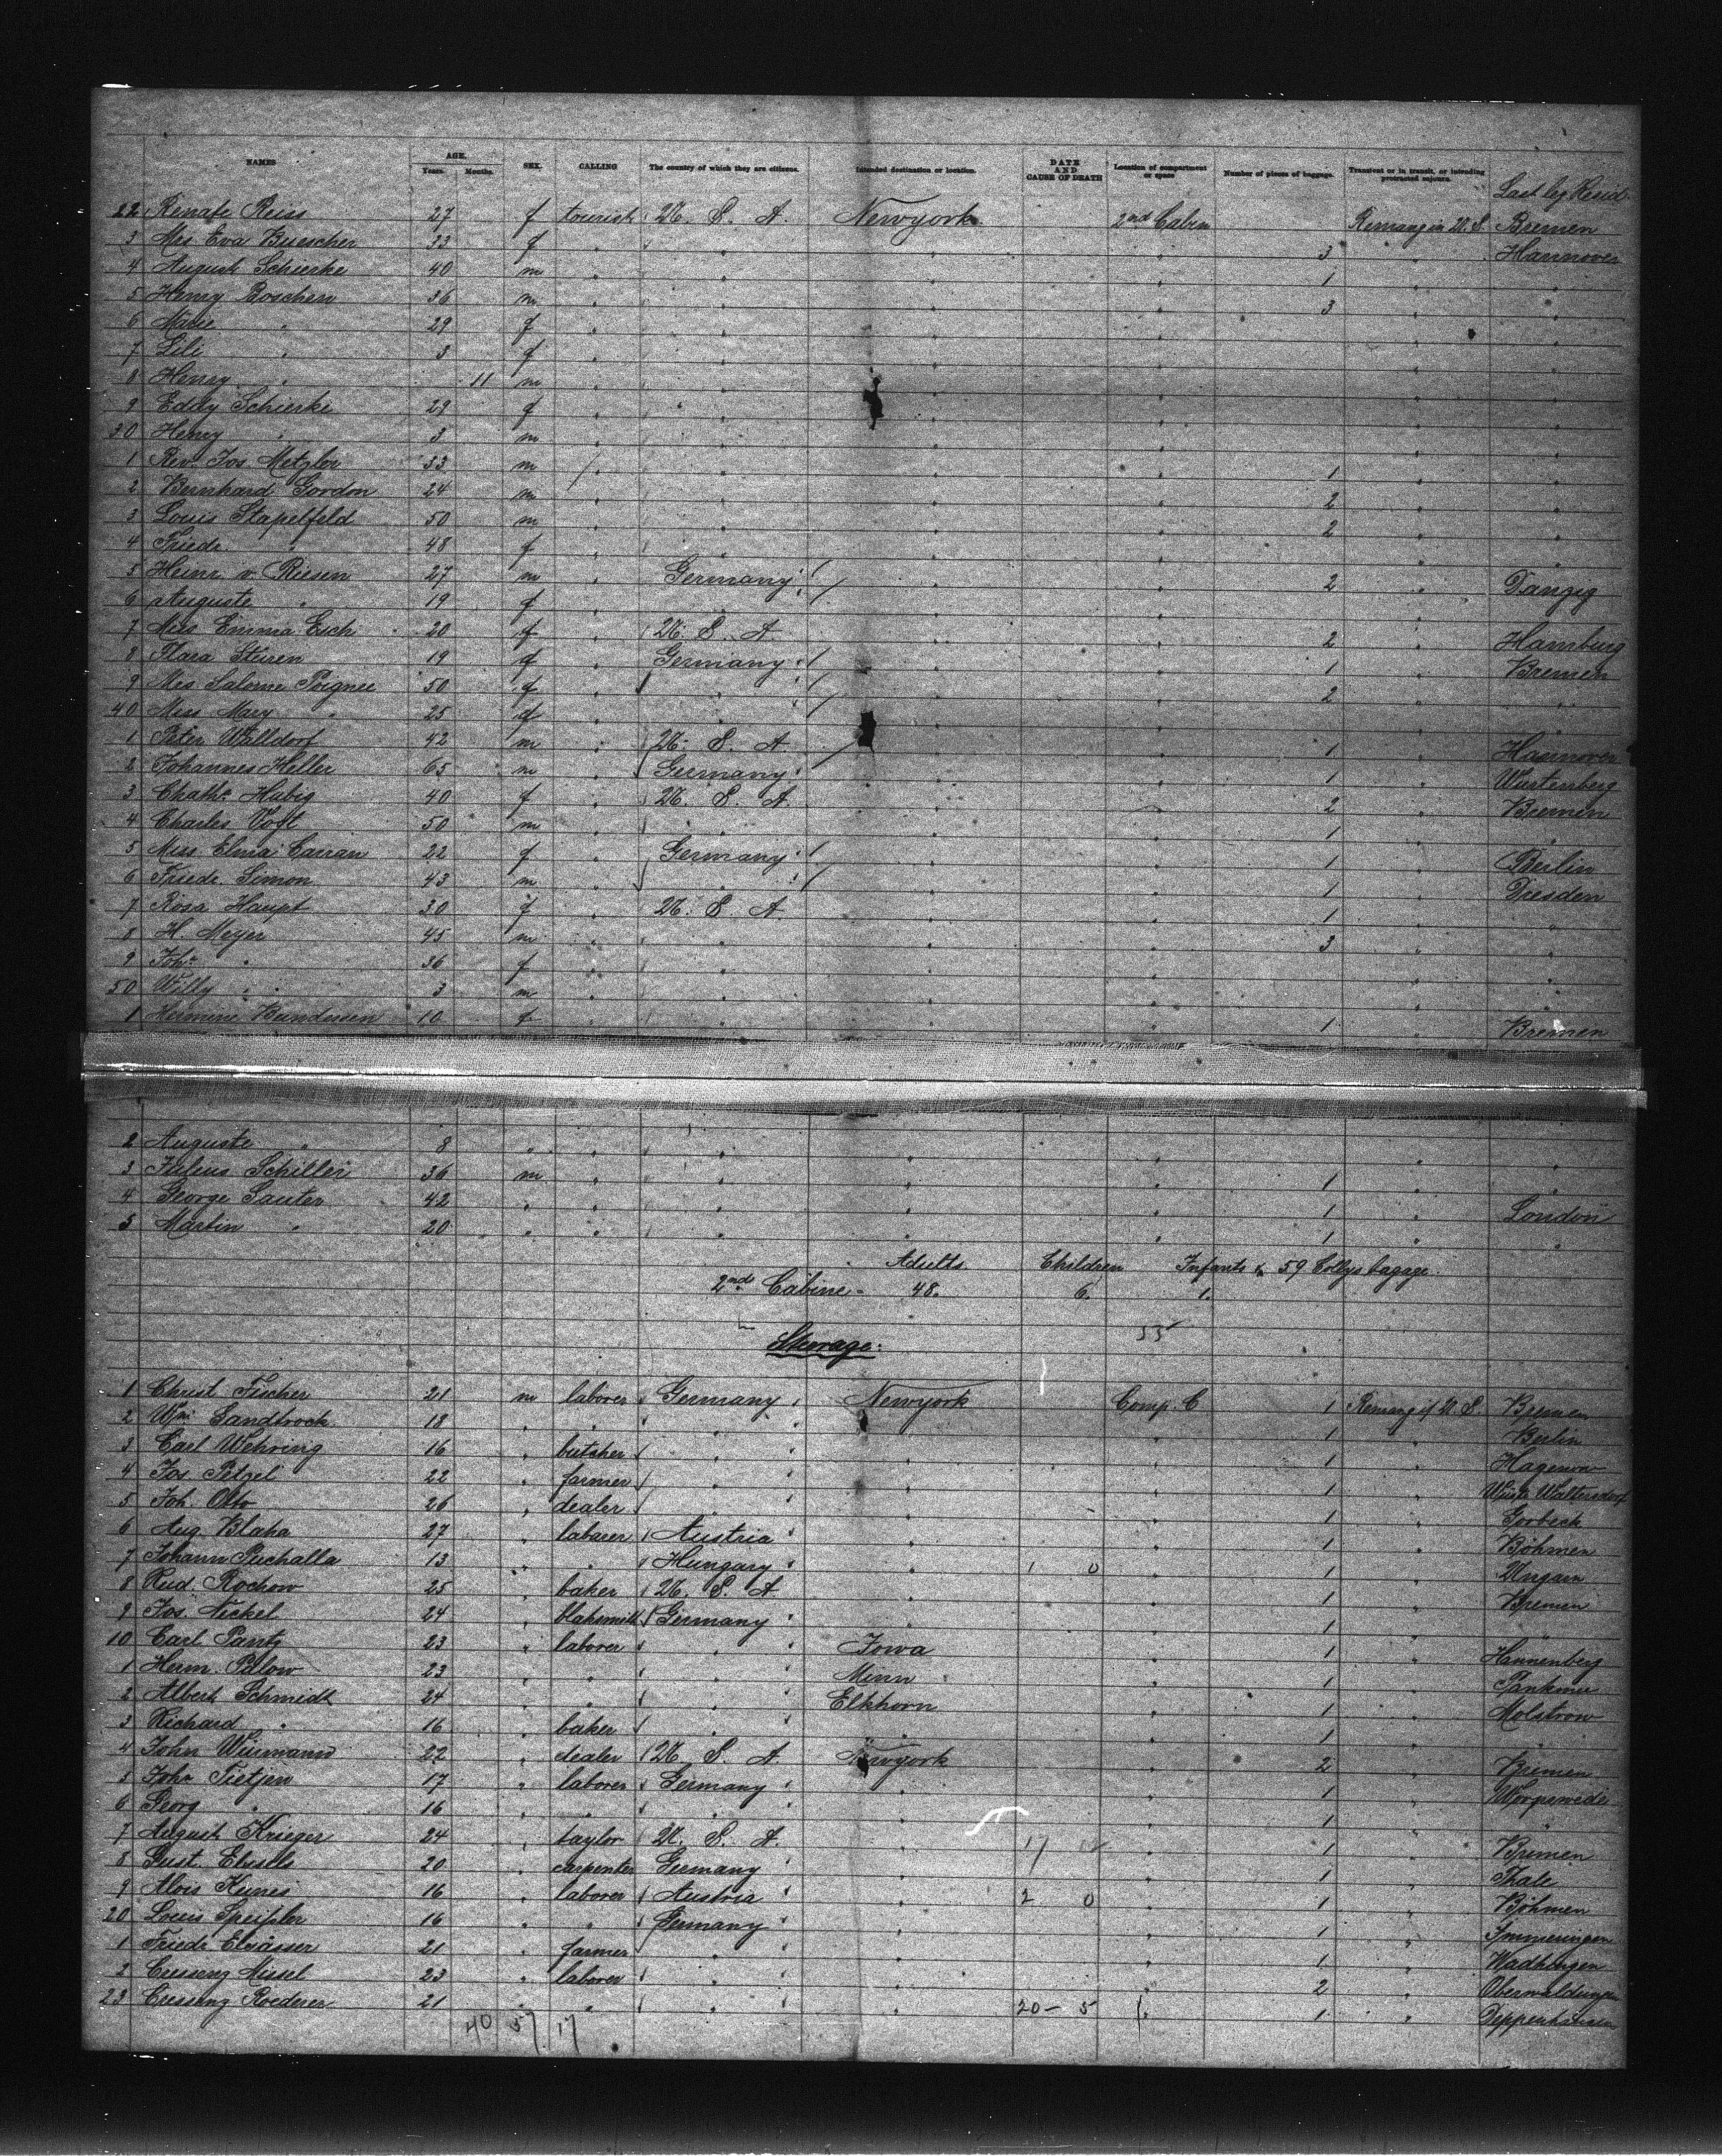 NAMES AGE. Years. Months. SEX. CALLING The country of which they are citizens. Intended destination or location. DATE AND CAUSE OF DEATH Location of compartment or space Number of pieces of baggage. Transient or in transit, or intending protracted sojourn. Last leg Resid
22 Renate Reiss 27 f tourist U. S. A. Newyork 2nd Cabin Remang in U. S. Bremen
3 Mrs Eva Buescher 33 f " " " " 3 " Hannover
4 August Schierke 40 m " " " " 1 " "
5 Henry Boschen 36 m " " " " 3 " "
6 Marie " 29 f " " " " " "
7 Lili " 3 f " " " " " "
8 Henry " 11 m " " " " " "
9 Eddy Schierke 29 f " " " " " "
30 Henry " 3 m " " " " " "
1 Rev. Jos. Metzler 33 m " " " 1 " "
2 Bernhard Gordon 24 m " " " " 2 " "
3 Louis Stapelfeld 50 m " " " " 2 " "
4 Friedr. " 48 f " " " " " "
5 Heinr. v. Riesen 27 m " Germany " " 2 " Danzig
6 Auguste " 19 f " " " " " "
7 Miss Emma Esch 20 f " U. S. A. " " 2 " Hamburg
8 Flora Steiren 19 f " Germany " " 1 " Bremen
9 Mrs Salome Poignee 50 f " " " " 2 " "
40 Miss Mary " 25 f " " " " " "
1 Peter Walldorf 42 m " U. S. A. " " 1 " Hannover
2 Johannes Heller 65 m " Germany " " 1 " Wurtenberg
3 Chath. Hubig 40 f " U. S. A. " " 2 " Bremen
4 Charles Vogt 50 m " " " " 1 " "
5 Miss Elma Carran 22 f " Germany " " 1 " Berlin
6 Friedr. Simon 43 m " " " " 1 " Dresden
7 Rosa Haupt 30 f " U. S. A. " " 1 " "
8 H. Meyer 45 m " " " " 3 " "
9 Joh. " 36 f " " " " " "
50 Willy " 3 m " " " " " "
1 Hermine Bundesen 10 f " " " " 1 " Bremen
2 Auguste " 8 " " " " " " "
3 Julius Schiller 36 m " " " " 1 " "
4 George Sauter 42 " " " " " 1 " London
5 Martin " 20 " " " " " 1 " "
Adults Children Infants & 59 Collys bagage.
2nd Cabine = 48. 6. 1.
55
Steerage:
1 Christ. Fischer 21 m laborer Germany Newyork Comp. C 1 Remang if U. S. Bremen
2 Wm Sandtrock 18 " " " " " 1 " Berlin
3 Carl Wehring 16 " butcher " " " 1 " Hagenow
4 Jos. Petzel 22 " farmer " " " 1 " Wüst Waltersdorf
5 Joh. Otto 26 " dealer " " " 1 " Gorbeck
6 Aug. Blaha 27 " laborer Austria " " 1 " Böhmen
7 Johann Puchalla 13 " " Hungary " 1 0 " 1 " Ungarn
8 Rud. Rochow 25 " baker U. S. A. " " 1 " Bremen
9 Jos. Nickel 24 " blaksmith Germany " " 1 " "
10 Carl Pantz 23 " laborer " Iowa " 1 " Hannenberg
1 Herm. Pilow 23 " " " Minn " 1 "
2 Albert Schmidt 24 " " " Elkhorn " 1 " Molstrow
3 Richard " 16 " baker " " " 1 " "
4 John Wiemann 22 " dealer U. S. A. Newyork " 2 " Bremen
5 Joh. Tietjen 17 " laborer Germany " " 1 " Worpswede
6 Georg " 16 " " " " " 1 " "
7 August Krieger 24 " taylor U. S. A. " 17 " 1 " Bremen
8 Gust. 20 " carpenter Germany " " 1 " Thale
9 Alois Kunes 16 " laborer Austria " 2 0 " 1 " Böhmen
20 Louis Speissler 16 " " Germany " " 1 " Immeringen
1 Friedr. Elsässer 21 " farmer " " " 1 " Wadhingen
2 Cressenz Missel 23 " laborer " " " 2 "
23 Cressenz Roederer 21 " " " " 20 - 5 " 1 "
40 57 17